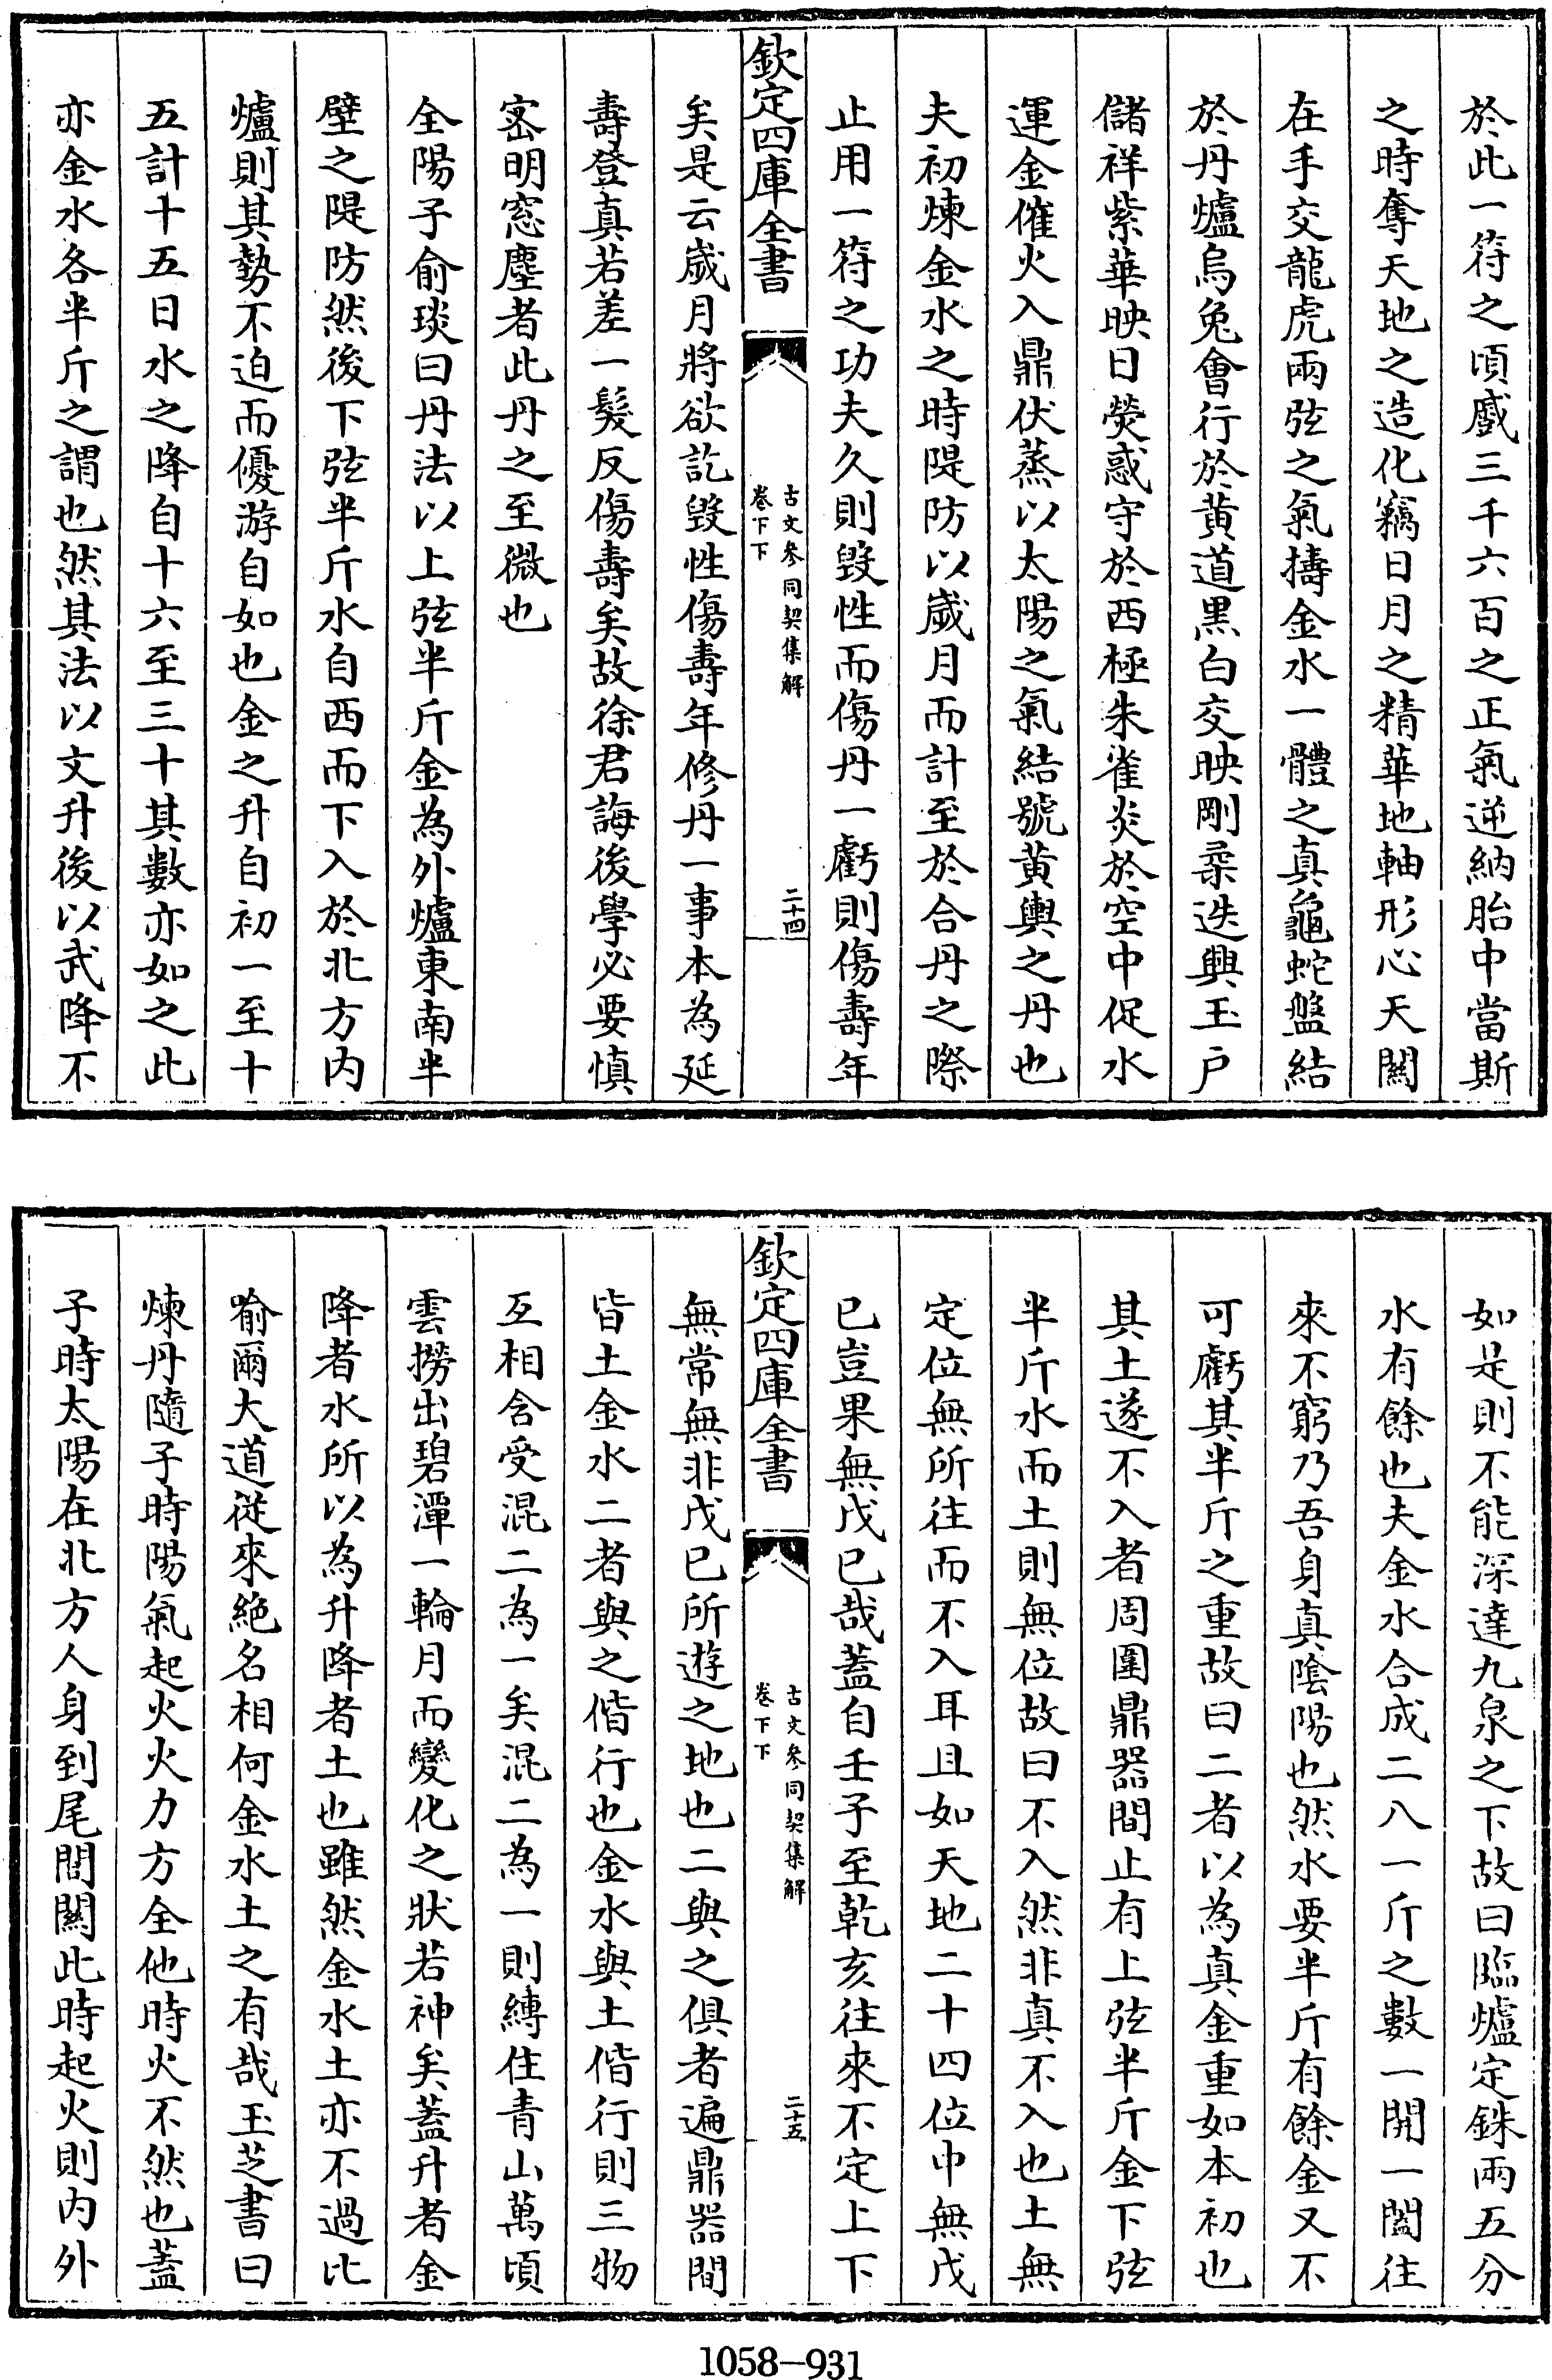 於此一符之頃蹙三千六百之正氣逆納胎中當斯
之時奪天地之造化竊日月之精華地軸形心天關
在手交龍虎兩弦之氣擣金水一體之真龜蛇盤結
於丹爐烏兔會行於黄道黒白交映剛柔迭興玉戶
儲祥紫華映日熒惑守於西極朱雀炎於空中促水
運金催火入鼎伏蒸以太陽之氣結號黄輿之丹也
夫初煉金水之時隄防以嵗月而計至於合丹之際
止用一符之功夫久則毀性而傷丹一虧則傷壽年
欽定四庫全書
古文參同契集解
卷下下
二十四
矣是云嵗月將欲訖毀性傷壽年修丹一事本為延
壽登真若差一髮反傷壽矣故徐君誨後學必要慎
密明窓塵者此丹之至微也
全陽子俞琰曰丹法以上弦半斤金為外爐東南半
壁之隄防然後下弦半斤水自西而下入於北方内
爐則其勢不迫而優游自如也金之升自初一至十
五計十五日水之降自十六至三十其數亦如之此
亦金水各半斤之謂也然其法以文升後以武降不
如是則不能深達九泉之下故曰臨爐定銖兩五分
水有餘也夫金水合成二八一斤之數一開一闔往
來不窮乃吾身真陰陽也然水要半斤有餘金又不
可虧其半斤之重故曰二者以為真金重如本初也
其土遂不入者周圍鼎器間止有上弦半斤金下弦
半斤水而土則無位故曰不入然非真不入也土無
定位無所往而不入耳且如天地二十四位中無戊
已豈果無戊已哉蓋自壬子至乾亥往來不定上下
欽定四庫全書
古文參同契集解
卷下下
二十五
無常無非戊已所遊之地也二與之俱者遍鼎器間
皆土金水二者與之偕行也金水與土偕行則三物
互相含受混二為一矣混二為一則縛住青山萬頃
雲撈出碧潭一輪月而變化之狀若神矣蓋升者金
降者水所以為升降者土也雖然金水土亦不過比
喻爾大道從來絶名相何金水土之有哉玉芝書曰
煉丹隨子時陽氣起火火力方全他時火不然也蓋
子時太陽在北方人身到尾閭關此時起火則内外
1058-931